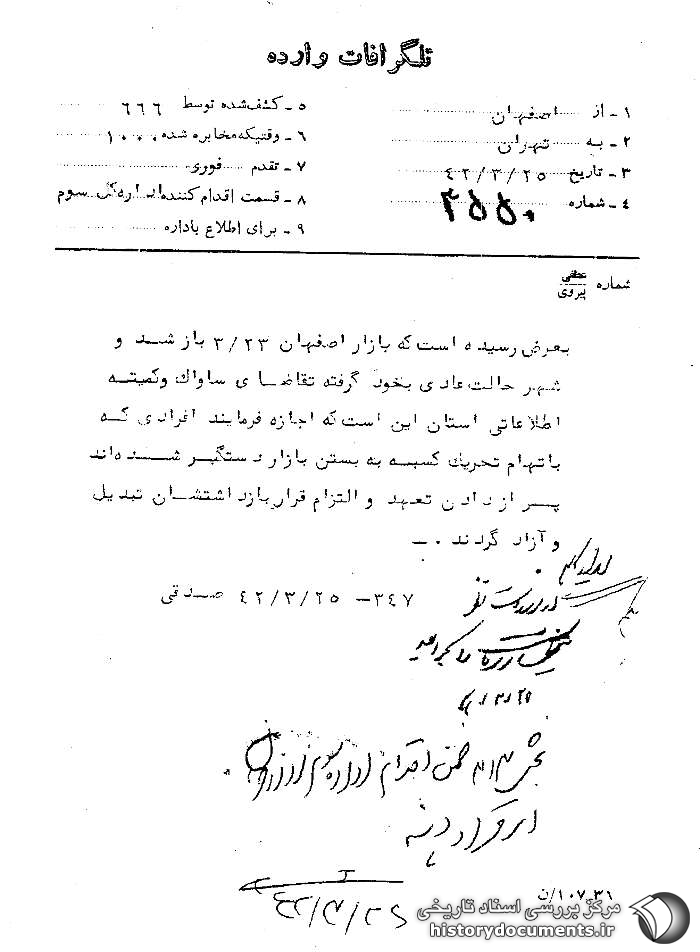 تلگرافات وارده
۱ ـ از اصفهان
۲ ـ به تهران
۳ ـ تاریخ ۴۲/۳/۲۵
۴ ـ شماره ۳۵۵۰
۵ ـ کشف شده توسط ۶۶۶
۶ ـ وقتیکه مخابره شده ۱۰۰۰
۷ ـ تقدم فوری
۸ ـ قسمت اقدام کننده اداره کل سوم
۹ ـ برای اطلاع باداره
شماره
پیروی
بعرض رسیده است که بازار اصفهان ۳/۲۳ باز شد و
شهر حالت عادی بخود گرفته تقاضای ساواک وکمیته
اطلاعاتی استان این است که اجازه فرمایند افرادی که
باتهام تحریک کسبه به بستن بازار دستگیر شده‌اند
پس از دادن تعهد و التزام قرار بازداشتشان تبدیل
و آزاد گردند . ـ
۳۴۷ ـ ۴۲/۳/۲۵ صدقی
بخش ۳۱۳ ضمن اقدام اداره سوم
۴۲/۳/۲۵
۱۰۷ـ۳۱/ن
مرکز بررسی اسناد تاریخی
historydocuments.ir